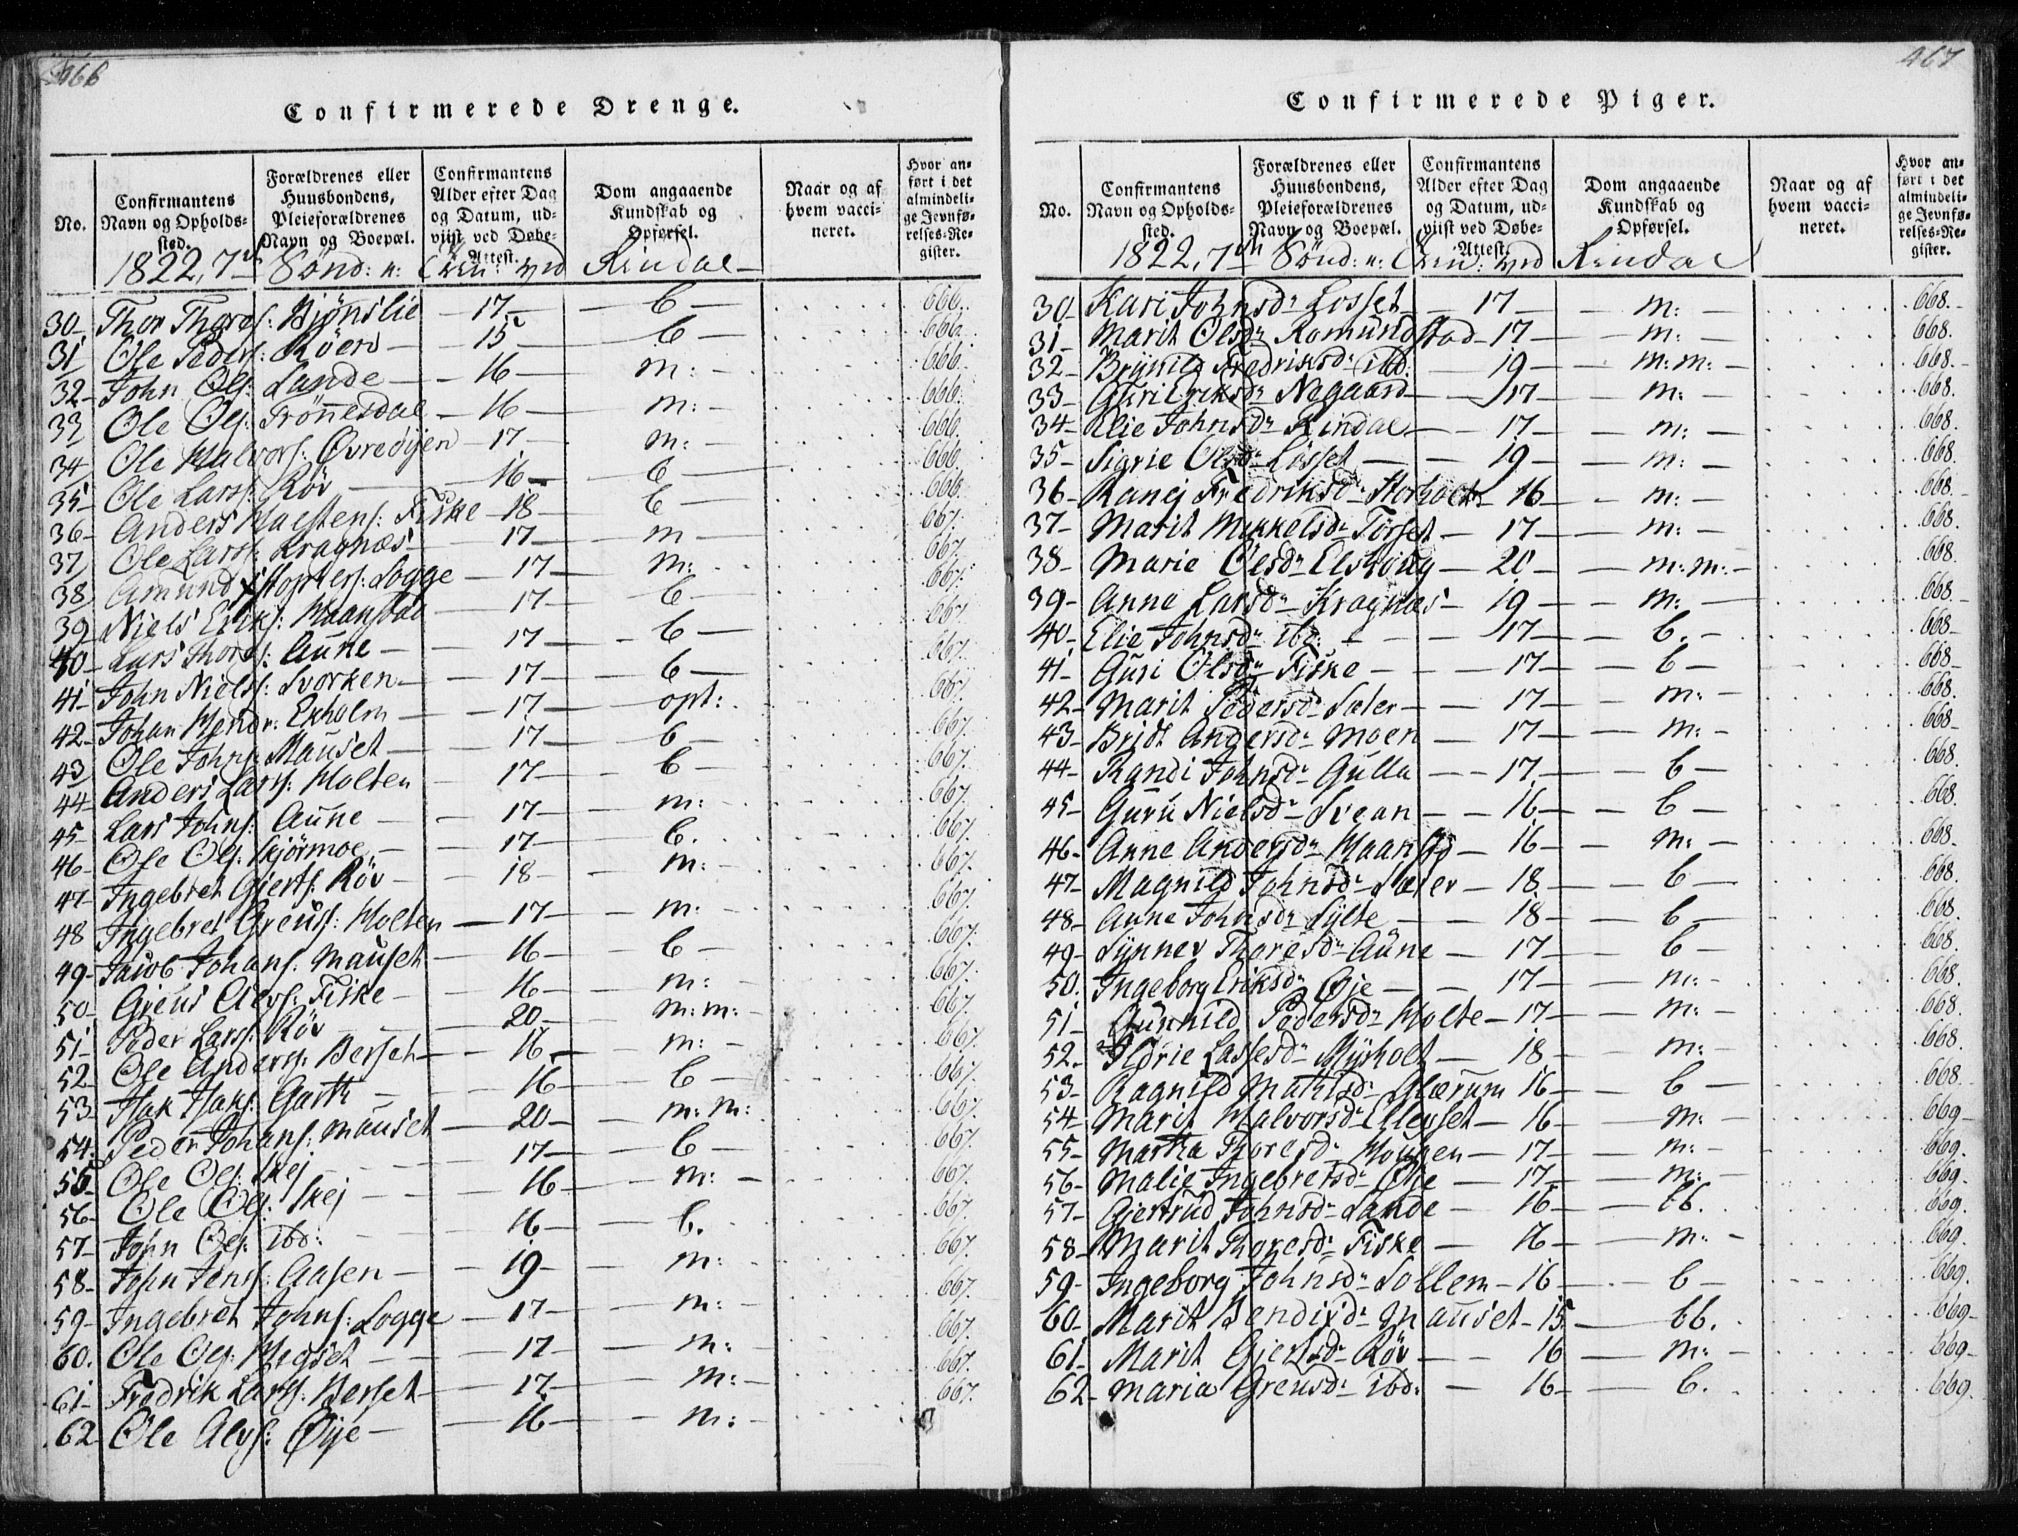 466
Confirmerede Drenge.
No.
Confirmantens Navn og Opholdssted.
Forældrenes eller Huusbondens, Pleieforældrenes Navn og Boepæl.
Confirmantens Alder efter Dag og Datum, udviist ved Døbe-Attest.
Dom angaaende Kundskab og Opførsel.
Naar og af hvem vaccineret.
Hvor anført i det almindelige Jevnførelses-Register.
1822, 7de Sønd: n: Trin: ved Rindal
30 Thor Thores: Bjönslie 17 b 666.
31 Ole Peders: Röen 15 b 666.
32 John Ols: Lande 16 m: 666.
33 Ole Ols: Trönnesdal 16 m: 666.
34 Ole Halvors: Øvredyen 17 m: 666.
35 Ole Larss: Röv 16 b 666.
36 Anders Halstens: Fiske 18 b 666.
37 Ole Larss: Kragnæs 17 m 667.
38 Amund Logge 17 m: 667.
39 Niels Eriks: Haanstad 17 b 667.
40 Lars Thores: Aune 17 b 667.
41 John Nielss: Svorken 17 b 667.
42 Johan Hendr: Ekholm 17 opt: 667.
43 Ole Johns: Mauset 17 b 667.
44 Anders Larss: Holten 17 b 667.
45 Lars Johns: Aune 17 m: 667.
46 Ole Ols: Skjörmoe 17 b. 667.
47 Ingebret Gjerts: Röv 18 m: 667.
48 Ingebret Greuss: Holten 17 m: 667.
49 Jacob Johans: Mauset 16 b 667.
50 Greus Fiske 16 m: 667.
51 Peder Larss: Röv 20 m: m: 667.
52 Ole Anderss: Berset 16 m: 667.
53 Isak Isaks: Garte 16 b 667.
54 Peder Johans: Mauset 20 m: m: 667.
55 Ole Ols: Skej 17 b 667.
56 Ole Ols: Skej 16 m: 667.
57 John Ols: ibd: 16 b. 667.
58 John Jenss: Aasen 19 m: 667.
59 Ingebret Johns: Logge 17 m: 667.
60. Ole Ols: 17 m: 667.
61 Fredrik Larss: Berset 17 m: 667.
62 Ole Øije 16 m:
467
Confirmerede Piger.
No.
Confirmantens Navn og Opholdssted.
Forældrenes eller Huusbondens, Pleieforældrenes Navn og Boepæl.
Confirmantens Alder efter Dag og Datum, udviist ved Døbe-Attest.
Dom angaaende Kundskab og Opførsel.
Naar og af hvem vaccineret.
Hvor anført i det almindelige Jevnførelses-Register.
1822, 7de Sønd: n: Trin: ved Rindal
30 Kari Johnsdr Losset 17 m: 668.
31 Marit Olsdr Romundstad 17 m: 668.
32 Brynild Fredriksdr ibd: 19 m: m: 668
33 Guri Eriksdr Negaard 17 m: 668.
34 Elie Johnsdr Rindal 17 m: 668.
35 Sigrie Olsdr Losset 19 m: 668.
36 Ranej Fredriksdr Storholt 16 m: 668.
37 Marit Mikkelsdr Torset 17 m: 668.
38 Marie Olsdr Elshoug 20 m: m: 668.
39 Anne Larsdr Kragnæs 19 m: 668
40 Elie Johnsdr ibd: 17 b. 668
41 Guri Olsdr Fiske 17 b 668
42 Marit Pedersdr Sæter 17 m: 668.
43 Brit Andersdr Moen 17 m: 668
44 Randi Johnsdr Gulla 17 b 668.
45 Guru Nielsdr Svean 16 b 668.
46 Anne Andersdr Haanstd 16 m: 668
47 Magnild Johnsdr Sæter 18 b 668.
48 Anne Johnsdr Sylte 18 b 668.
49 Synnev Thoresdr Aune 17 b 668.
50. Ingeborg Eriksdr Øje 17 m: 668.
51 Gunnild Pedersdr Holte 17 m: 668.
52. Ildrie Lassesdr Myrholt 18 m: 668.
53 Ragnild Mathisdr Glærum 16 b 668.
54 Marit Halvorsdr Ellevset 16 m: 669
55 Martha Thoresdr Hougen 17 m: 669.
56 Malie Ingebretsdr Øje 17 m: 669.
57 Gjertrud Johnsdr Lande 16 bb. 669.
58 Marit Thoresdr Fiske 16 m: 669.
59 Ingeborg Johnsdr Sollem 16 b 669.
60. Marit Bendixdr Mauset 15 bb. 669
61 Marit Gjertsdr Röv 16 m: 669
62 Maria Greusdr ibd: 16 b. 669.